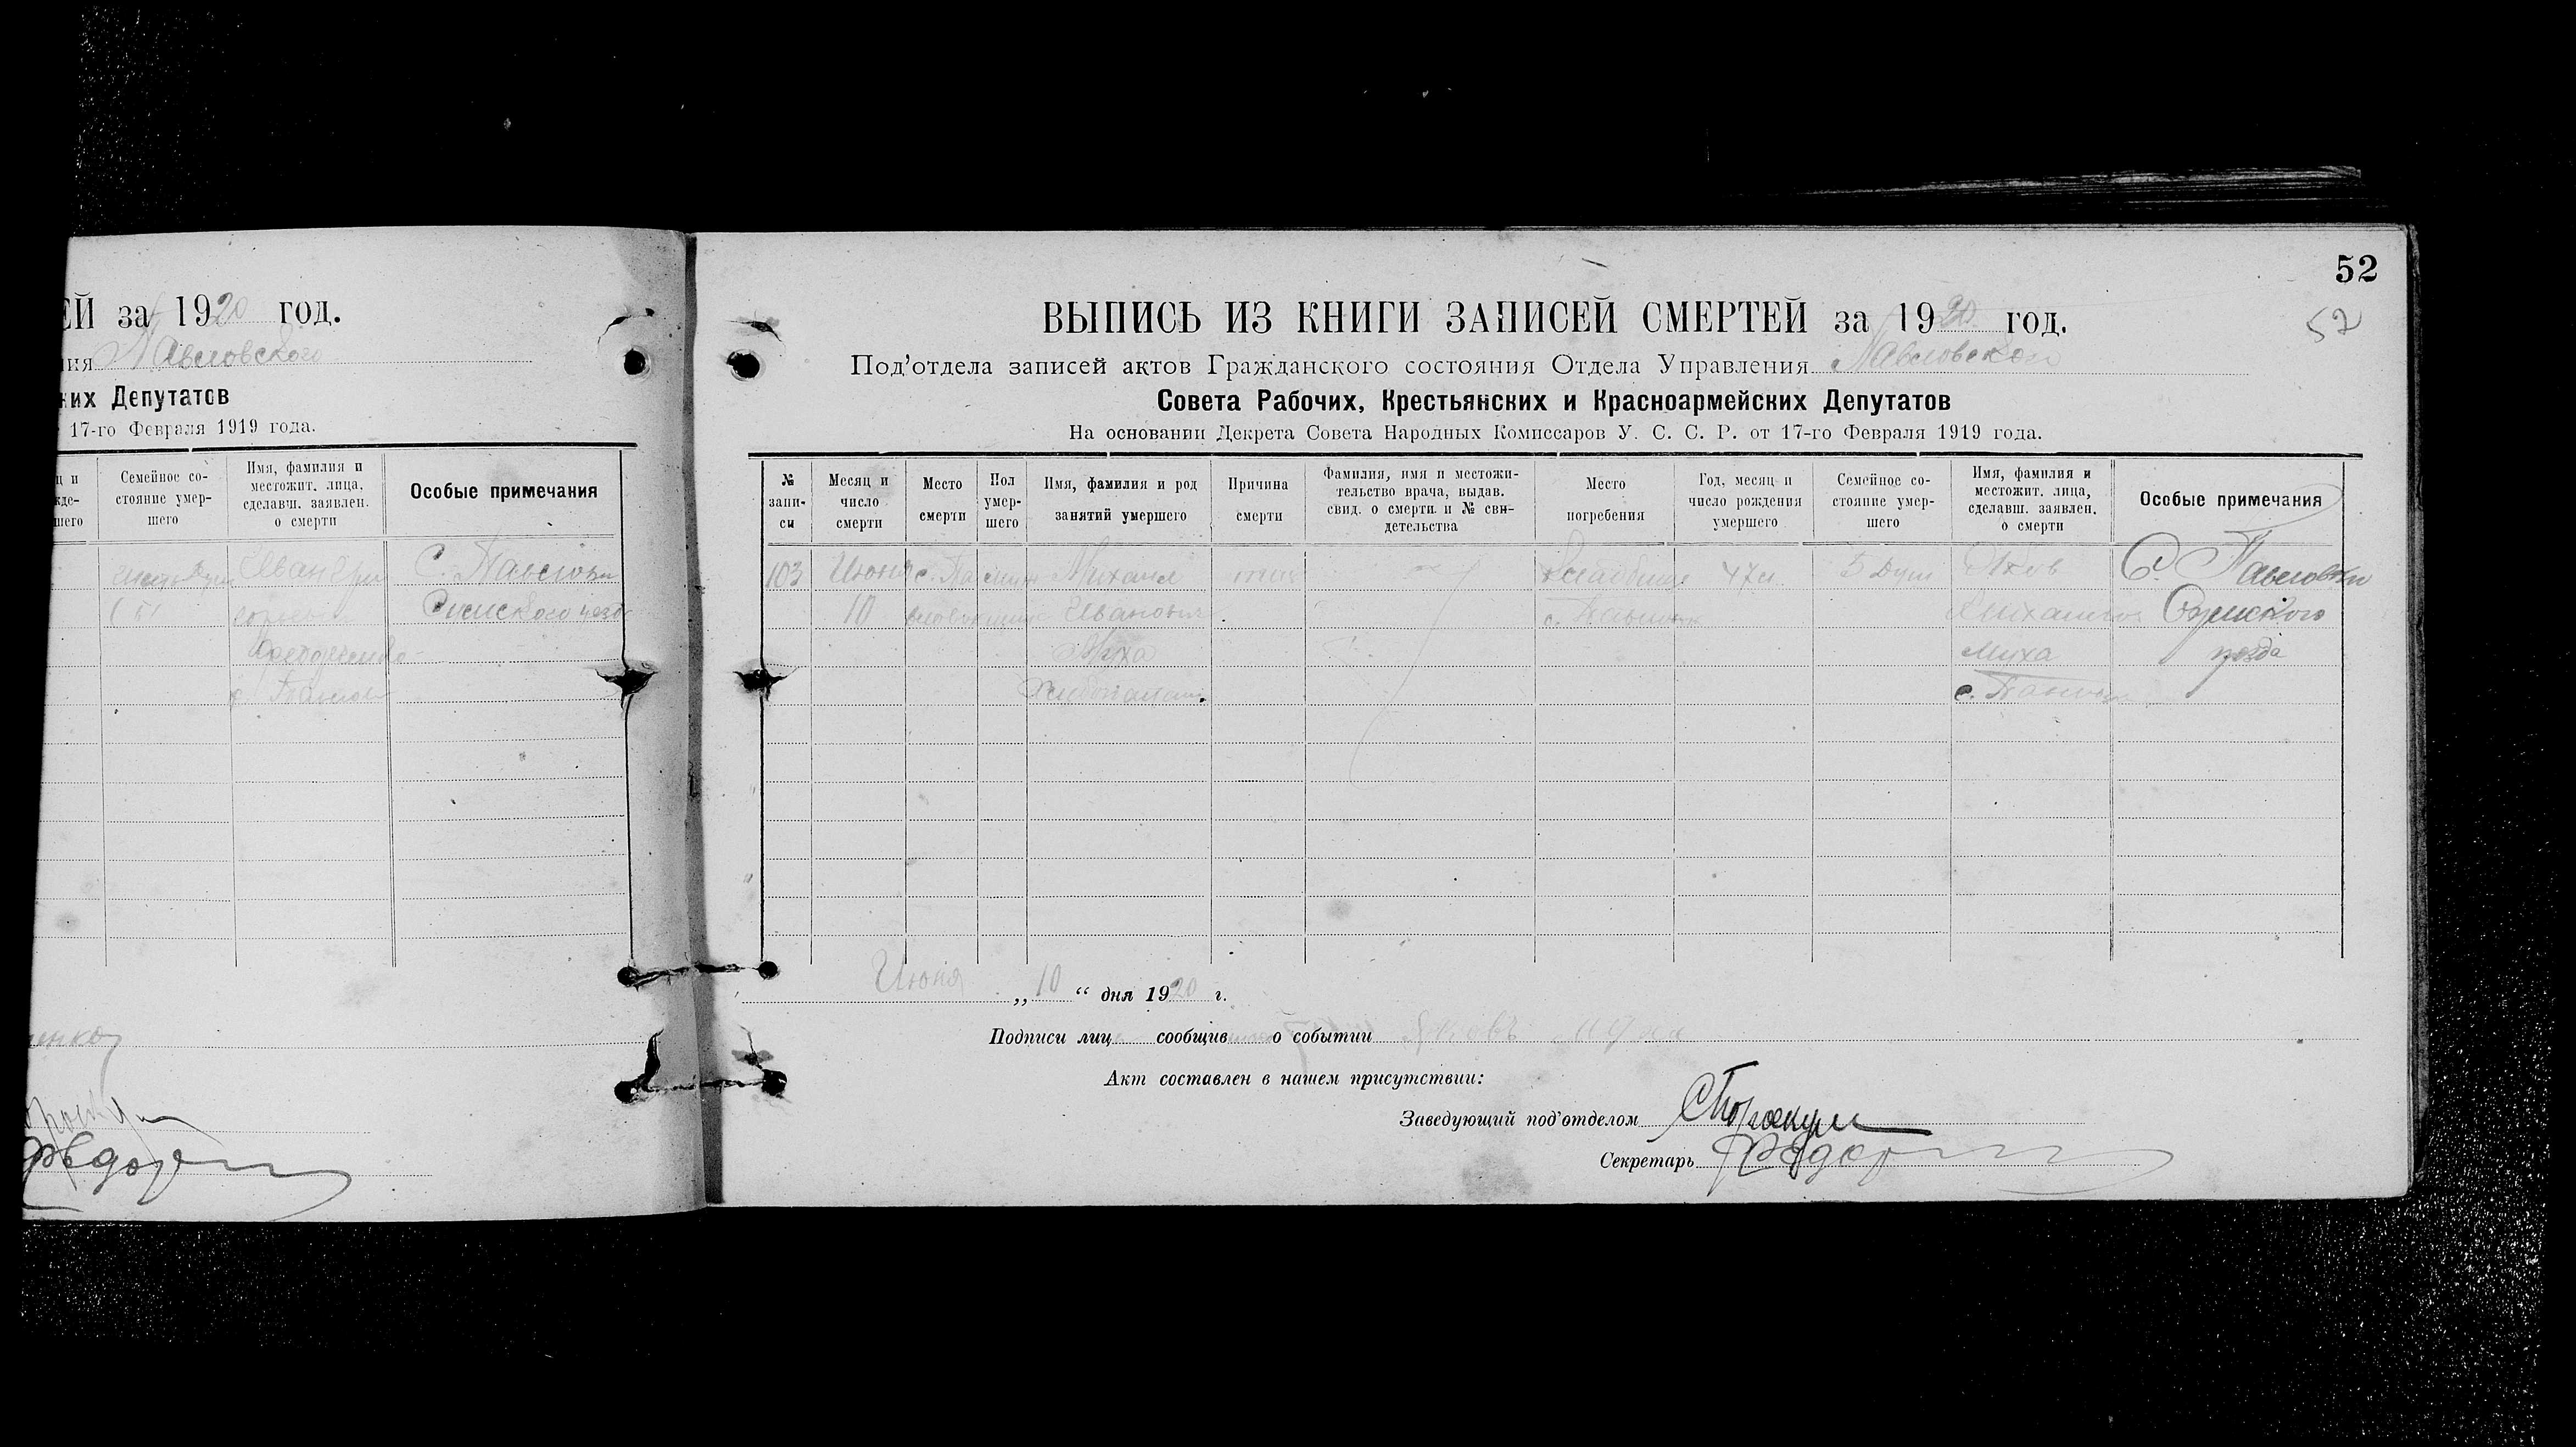 ЕЙ за 1920 год.
ия Павловского
ких Депутатов
17-го Февраля 1919 года.
ц и
жде-
шего
Семейное со-
стояние умер-
шего
Имя, фамилия и
местожит. лица,
сделавш. заявлен.
о смерти
Особые примечания
С. Павловки
Сумского уезда
52
52
ВЫПИСЬ ИЗ КНИГИ ЗАПИСЕЙ СМЕРТЕЙ за 1920 год.
Под'отдела записей актов Гражданского состояния Отдела Управления Павловского
Совета Рабочих, Крестьянских и Красноармейских Депутатов
На основании Декрета Совета Народных Комиссаров У. С. С. Р. от 17-го Февраля 1919 года.
№
запи-
си
Месяц и
число
смерти
Место
смерти
Пол
умер-
шего
Имя, фамилия и род
занятий умершего
Причина
смерти
Фамилия, имя и местожи-
тельство врача, выдав.
свид. о смерти и № сви-
детельства
Место
погребения
Год, месяц и
число рождения
умершего
Семейное со-
стояние умер-
шего
Имя, фамилия и
местожит. лица,
сделавш. заявлен.
о смерти
Особые примечания
103
Июня
10
Михаил
Иванович
Муха
Кладбище
47 л
5 душ
Яков
Михайлов
Муха
С. Павловки
Сумского
уезда
Июня „ 10 “ дня 1920 г.
Подписи лиц сообщив о событии Яковъ Муха
Акт составлен в нашем присутствии:
Заведующий под'отделом
Секретарь